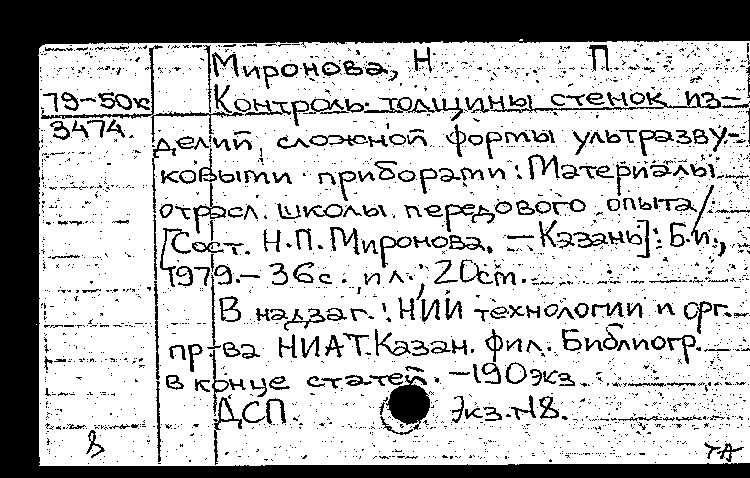 Миронова, Н П
79-50к Контроль толщины стенок из-
3474. делий сложной формы ультразву-
ковыми приборами: Материалы
отрасл. школы передового опыта/
[Сост. Н.П. Миронова. — Казань]: Б.и.,
1979.- 36с. ил.; 20см.
В надзаг.: НИИ технологии и орг.
пр-ва НИАТ. Казан. фил. Библиогр.
в конце статей. -190экз.
ДСП Экз.№18.
ТА